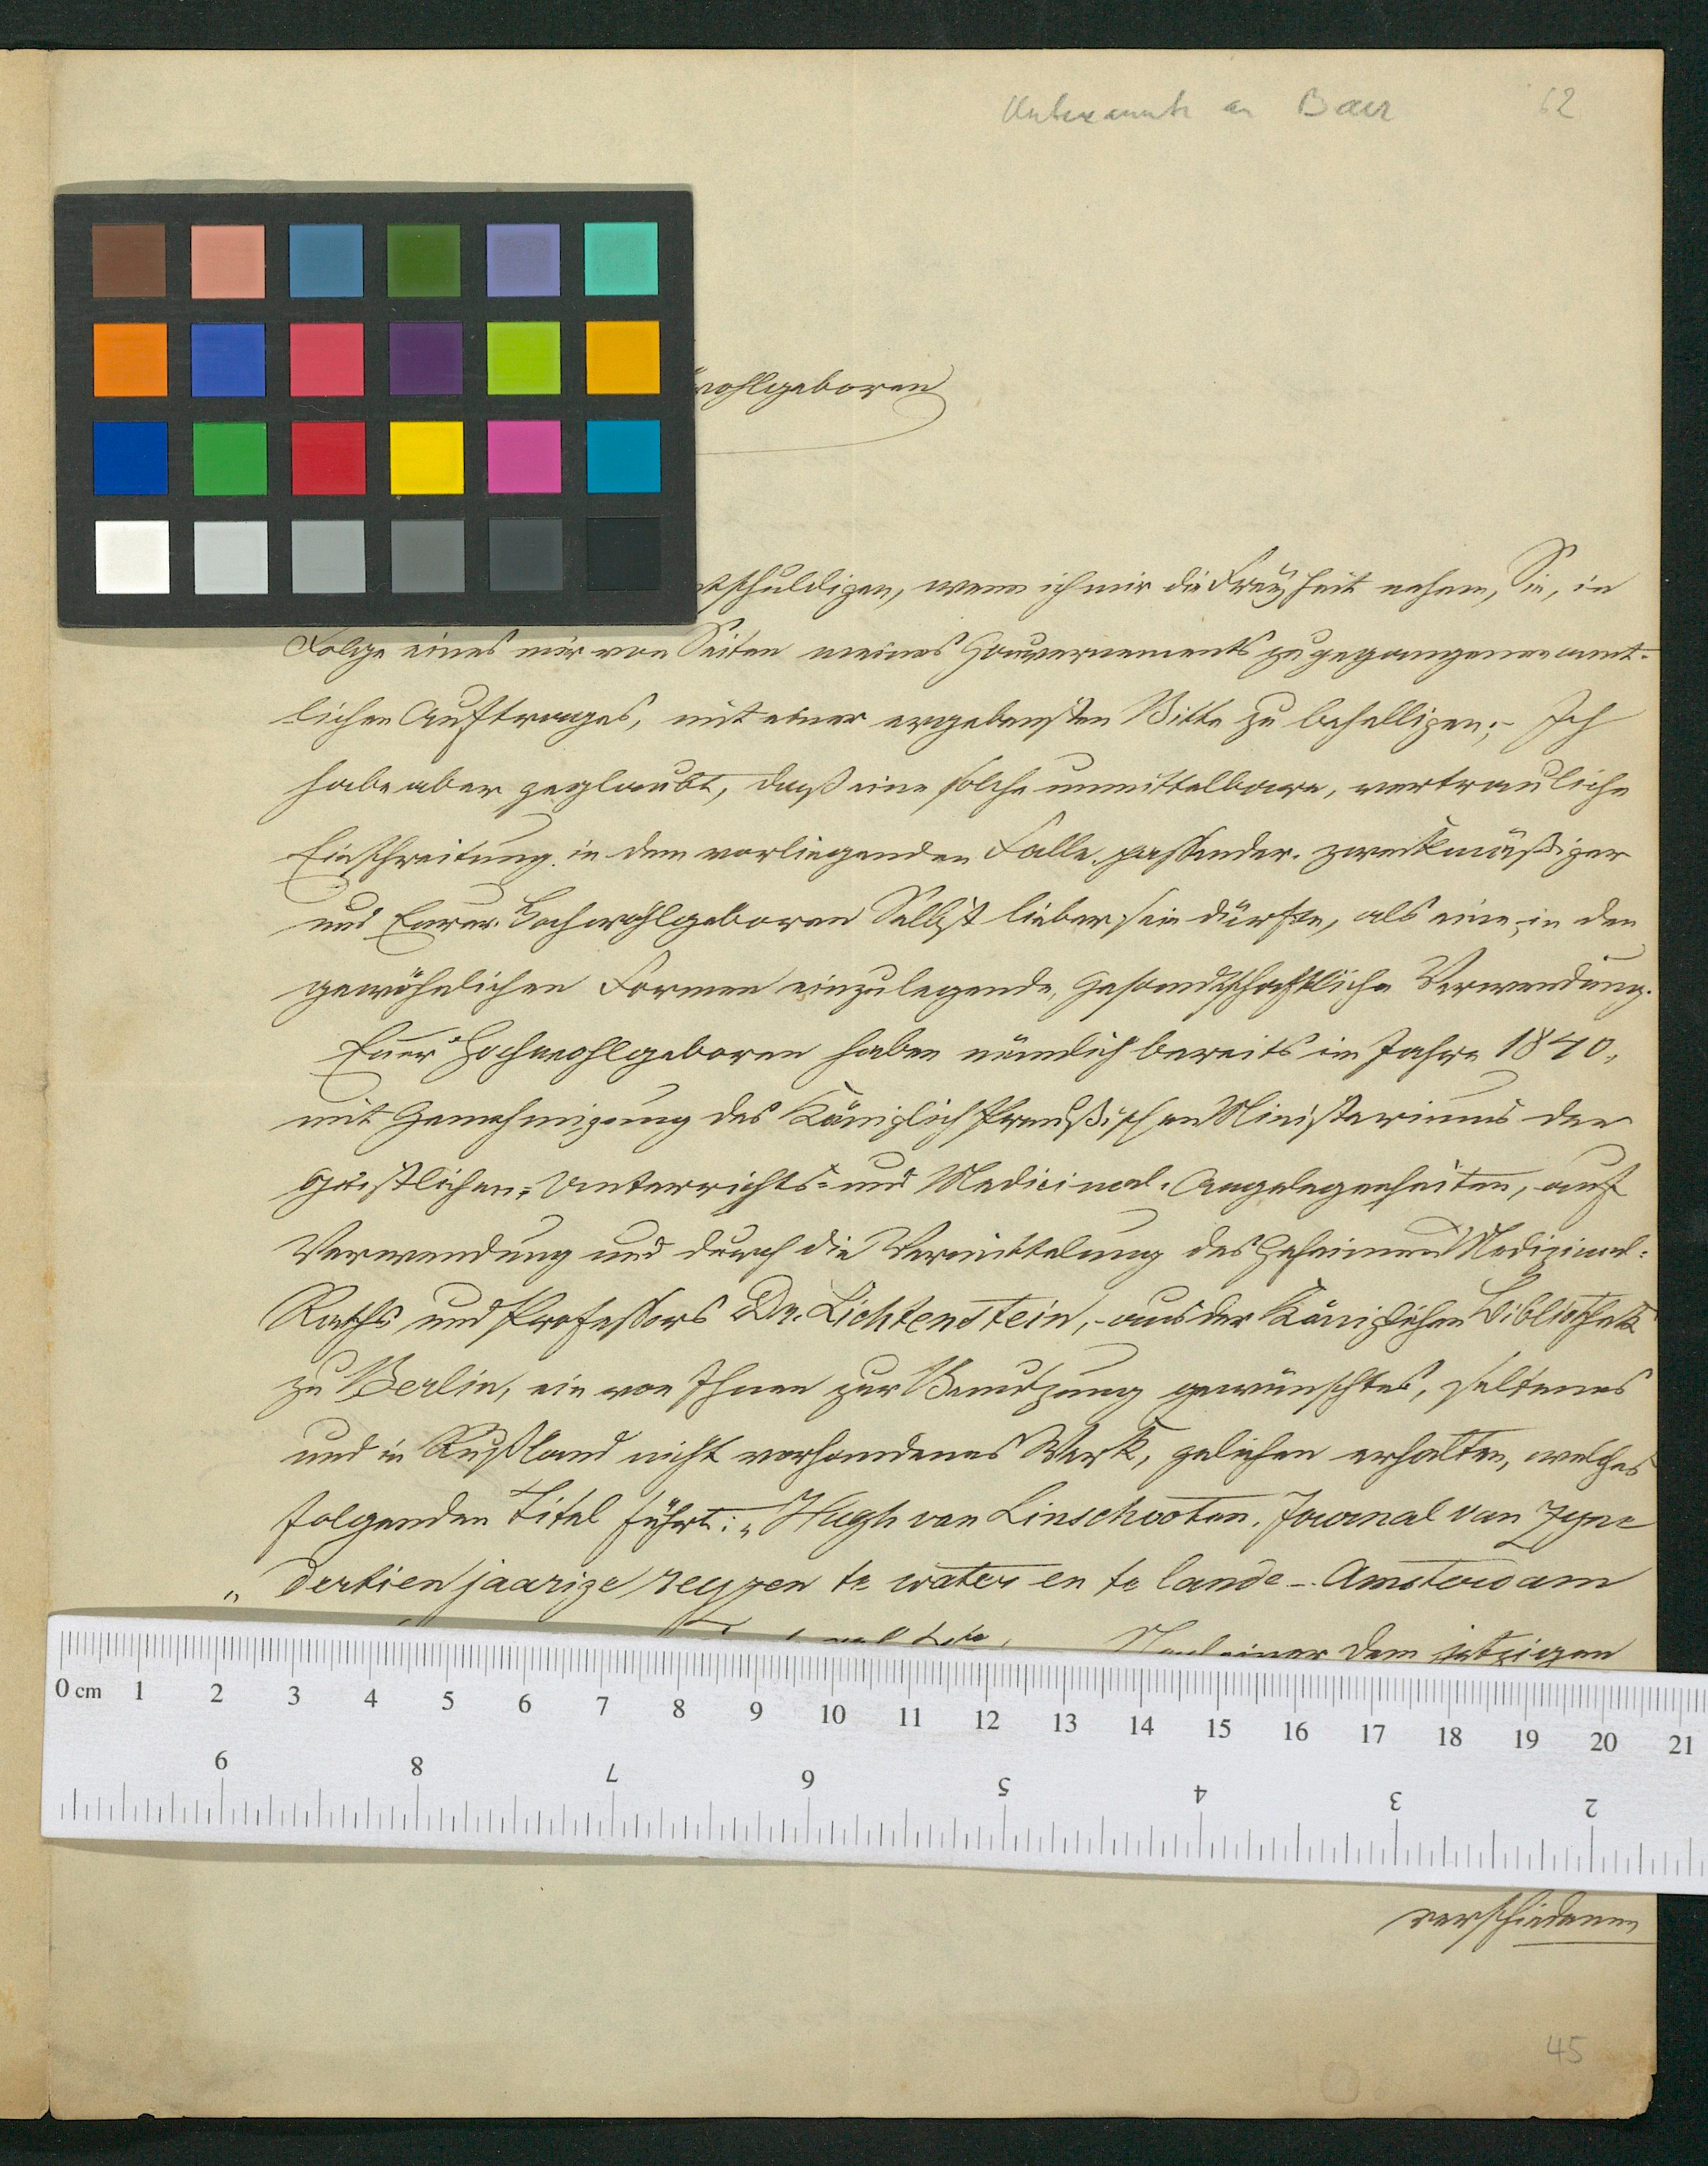 Unbekannte an Baer 62
wohlgeboren
tschuldigen, wenn ich mir die Freyheit nehme, Sie, in
Folge eines mir von Seiten meines Gouvernements zugegangenen amt-
lichen Auftrages, mit einer ergebensten Bitte zu behelligen;- Ich
habe aber geglaubt, daß eine solche unmittelbare, vertrauliche
Einschreitung in dem vorliegenden Falle passender, zweckmäßiger
und Eurer Hochwohlgeboren Selbst lieber sein dürfte, als eine, in den
gewöhnlichen Formen einzulegende, gesandtschaftliche Verwendung.
Euer Hochwohlgeboren haben nämlich bereits im Jahre 1840,
mit Genehmigung des Königlich Preußischen Ministeriums der
geistlichen-, Unterrichts- und Medicinal-Angelegenheiten, auf
Verwendung und durch die Vermittelung des Geheimen Medizinal-
Raths und Professors Dr. Lichtenstein, - aus der Königlichen Bibliothek
zu Berlin, ein von Ihnen zur Benutzung gewünschtes, seltenes
und in Rußland nicht vorhandenes Werk, geliehen erhalten, welches
folgenden Titel führt: „Hugh van Linschooten, Journal van zyne
„ dertien jaarige reyzen te water en te lande - Amsterdam
einer dem jetzigen
0 cm 1 2 3 4 5 6 7 8 9 10 11 12 13 14 15 16 17 18 19 20 21
9 8 7 6 5 4 3 2
verschiedenen
45